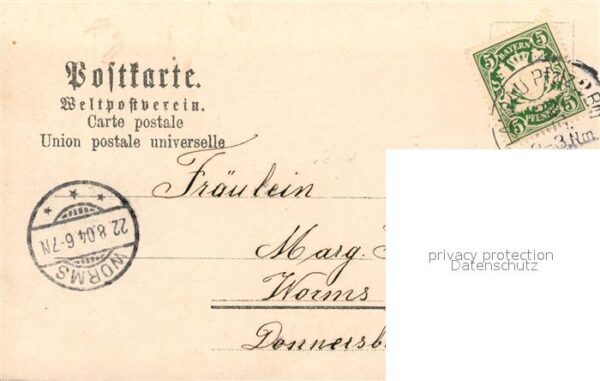 Postkarte.
Weltpostverein.
Carte postale
Union postale universelle
5 BAYERN 5
5 PFENNIG 5
Fräulein
Marg.
Worms
Donnersb
WORMS
22.8.04.6-7N
privacy protection
Datenschutz